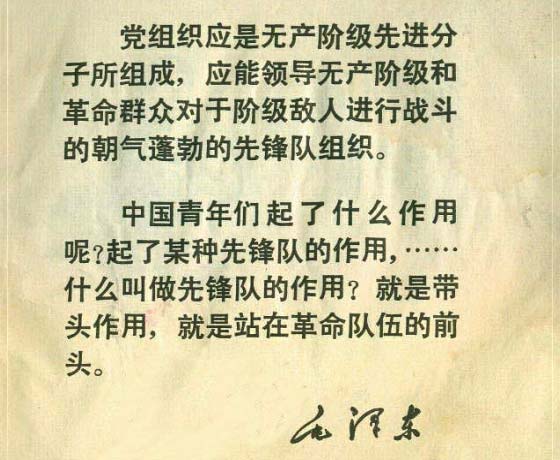 党组织应是无产阶级先进分
子所组成，应能领导无产阶级和
革命群众对于阶级敌人进行战斗
的朝气蓬勃的先锋队组织。
中国青年们起了什么作用
呢？起了某种先锋队的作用，……
什么叫做先锋队的作用？就是带
头作用，就是站在革命队伍的前
头。
毛泽东